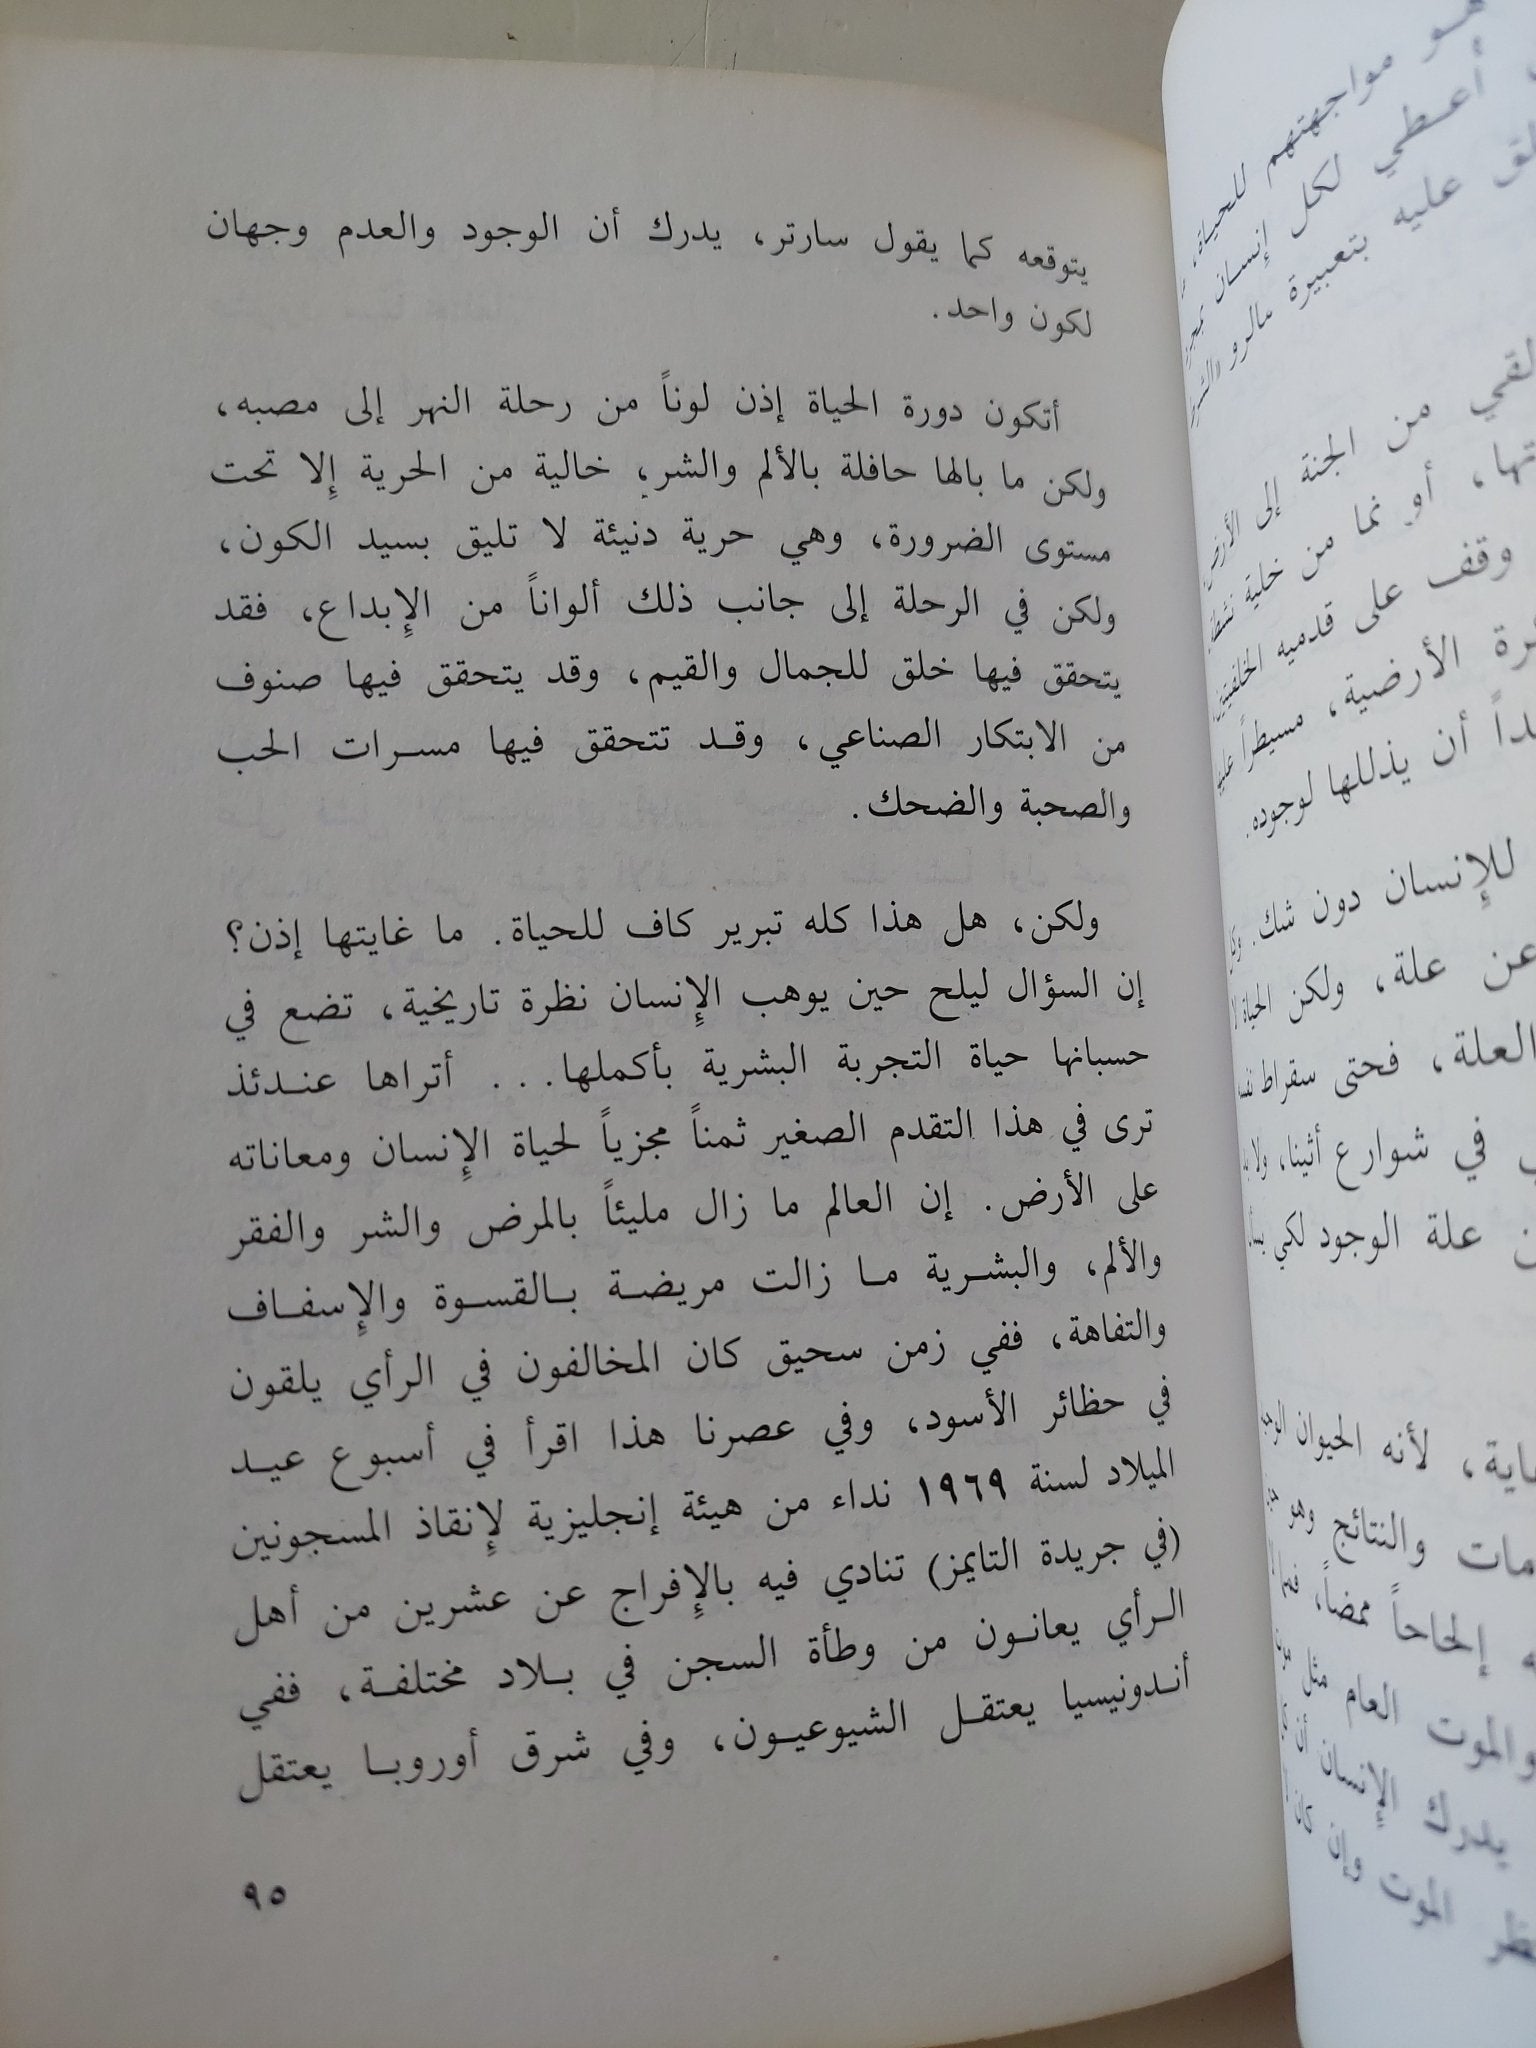 يتوقعه كما يقول سارتر، يدرك أن الوجود والعدم وجهان
لكون واحد.
أتكون دورة الحياة إذن لوناً من رحلة النهر إلى مصبه،
ولكن ما بالها حافلة بالألم والشر، خالية من الحرية إلا تحت
مستوى الضرورة، وهي حرية دنيئة لا تليق بسيد الكون،
ولكن في الرحلة إلى جانب ذلك ألواناً من الإبداع، فقد
يتحقق فيها خلق للجمال والقيم، وقد يتحقق فيها صنوف
من الابتكار الصناعي، وقد تتحقق فيها مسرات الحب
والصحبة والضحك.
ولكن، هل هذا كله تبرير كاف للحياة. ما غايتها إذن؟
إن السؤال ليلح حين يوهب الإنسان نظرة تاريخية، تضع في
حسبانها حياة التجربة البشرية بأكملها... أتراها عندئذ
ترى في هذا التقدم الصغير ثمناً مجزياً لحياة الإنسان ومعاناته
على الأرض. إن العالم ما زال مليئاً بالمرض والشر والفقر
والألم، والبشرية ما زالت مريضة بالقسوة والإسفاف
والتفاهة، ففي زمن سحيق كان المخالفون في الرأي يلقون
في حظائر الأسود، وفي عصرنا هذا اقرأ في أسبوع عيد
الميلاد لسنة ١٩٦٩ نداء من هيئة إنجليزية لإنقاذ المسجونين
(في جريدة التايمز) تنادي فيه بالإفراج عن عشرين من أهل
الرأي يعانون من وطأة السجن في بلاد مختلفة، ففي
أندونيسيا يعتقل الشيوعيون، وفي شرق أوروبا يعتقل
٩٥
هو مواجهتهم للحياة،
أعطي لكل إنسان
عليه بتعبيرة مالرو
من الجنة إلى الأرض
أو نما من خلية نشطة
وقف على قدميه الخلفيتين
الأرضية، مسيطراً
أن يذللها لوجوده.
للإنسان دون شك.
عن علة، ولكن الحياة لا
العلة، فحتى سقراط نفسه
في شوارع أثينا،
علة الوجود لكي
لأنه الحيوان
والنتائج وهو
إلحاحاً ممضاً،
والموت العام مثل
يدرك الإنسان أن
الموت وإن كان